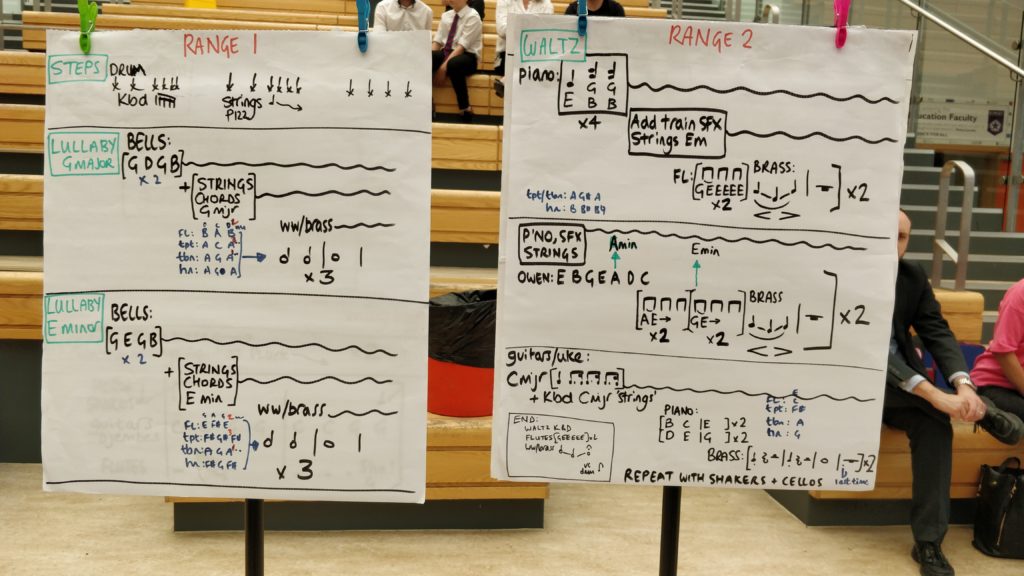 RANGE 1
STEPS
DRUM
Kbd
Strings
Pizz
LULLABY
G MAJOR
BELLS:
[G D G B]
x 2
+ [STRINGS
CHORDS
G mjr]
ww/brass
FL: B A B
tpt: A C A
tbn: A G A
hn: A G# A
x 3
LULLABY
E minor
BELLS:
[G E G B]
x 2
+ [STRINGS
CHORDS
E min]
ww/brass
FL: E F# E
tpt: F# G# F#
tbn: A G A
hn: F# G F#
x 3
RANGE 2
WALTZ
piano:
G G
E B B
x4
Add train SFX
Strings Em
FL: [GEEEEE]
x2
BRASS:
x2
tpt/tbn: A G# A
hn: B B# B4
P'NO, SFX
STRINGS
Amin
Emin
OWEN: E B G E A D C
[AE→] [GE→]
x2 x2
BRASS
x2
guitars/uke:
Cmjr
+ Kbd Cmjr 'strings'
PIANO:
[B C |E ]x2
[D E |G ]x2
FL: E
tpt: F#
tbn: A
hn: G
BRASS:
x2
last time
END:
WALTZ KBD
FLUTES [GEEEEE]
ww/brass
REPEAT WITH SHAKERS + CELLOS
Education Faculty